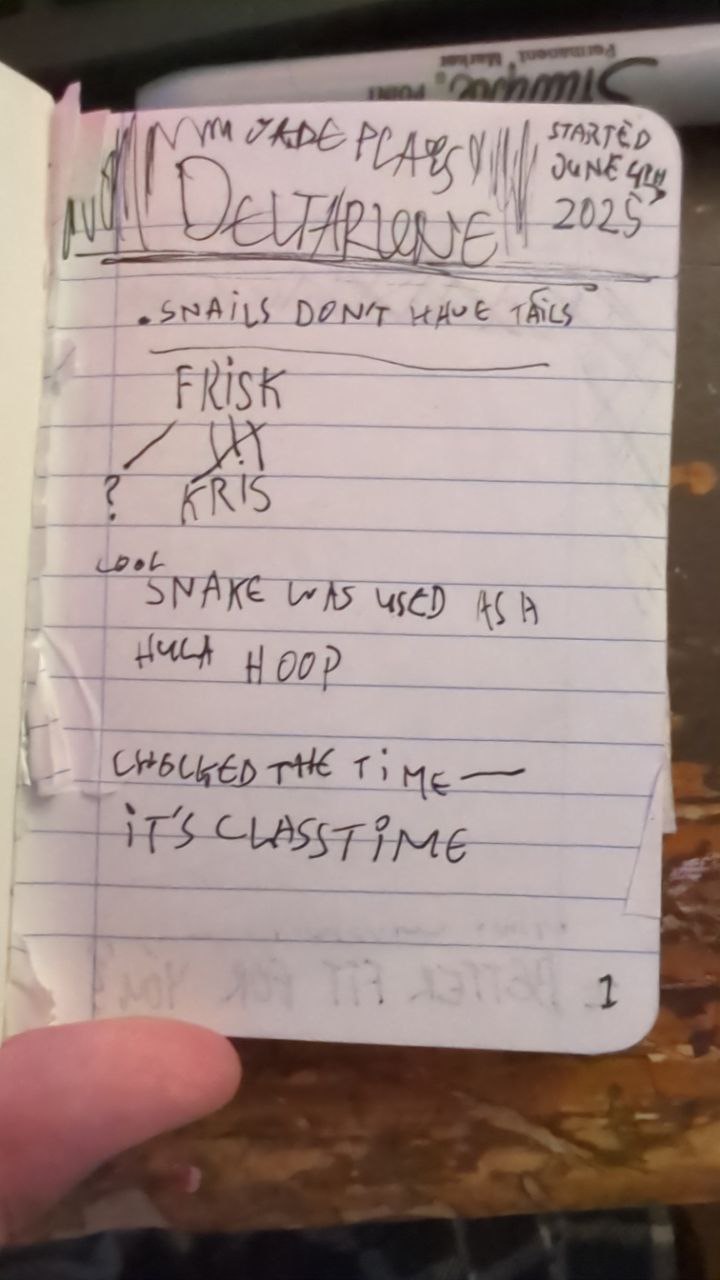 Permanent Marker
Sharpie
POINT
JADE PLAYS
DELTARUNE
STARTED
JUNE 4TH
2025
. SNAILS DON'T HAVE TAILS
FRISK
? KRIS
COOL
SNAKE WAS USED AS A
HULA HOOP
CHECKED THE TIME —
IT'S CLASSTIME
BETTER FIT FOR YOU?
1